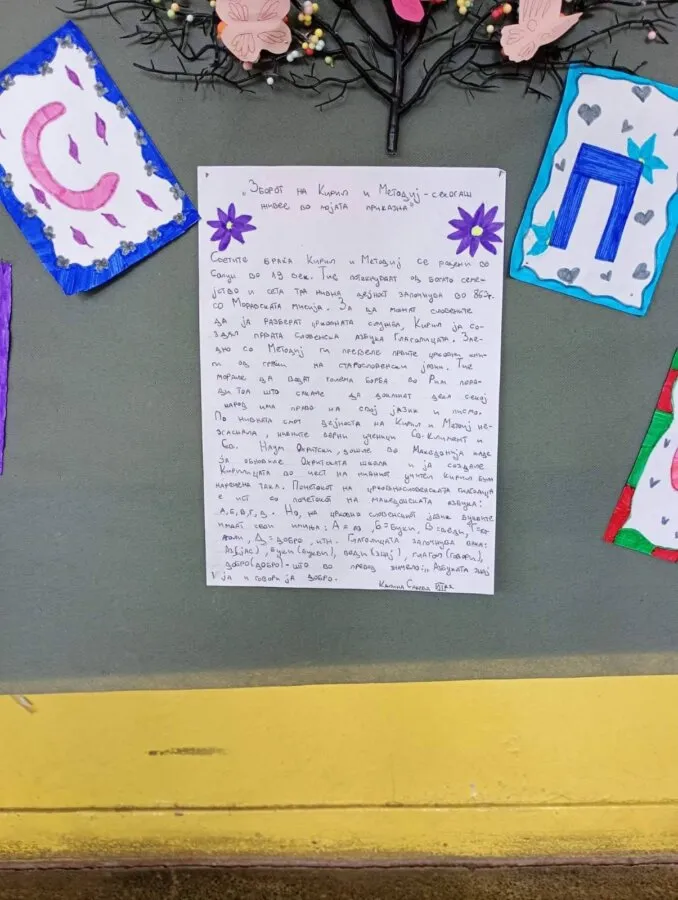 С
П
„Зборот на Кирил и Методиј - секогаш
живее во мојата приказна"
Светите браќа Кирил и Методиј се родени во
во 19 век. Тие потекнуваат од богато семе-
јство и сета таа нивна дејност започнува во 862г.
со Моравската мисија. За да можат словените
да ја разберат црковната служба, Кирил ја со-
здал првата словенска азбука Глаголицата. Зае-
дно со Методиј ги превеле првите црковни кни-
ги од грчки на старословенски јазик. Тие
морале да водат голема борба во Рим пора-
ди тоа што сакаме да докажат дека секој
народ има право на свој јазик и писмо.
По нивната смрт дејноста на Кирил и Методиј не
згаснала, нивните верни ученици Св. Климент и
Св. Наум Охритски, дошле во Македонија каде
ја обновиле Охритската школа и ја создале
Кирилицата во чест на нивниот учител Кирил била
наречена така. Почетокот на црковнословенската глаголица
е ист со почетокот на македонската азбука:
А, Б, В, Г, Д. Но, на црковно словенскиот јазик буквите
имаат свои имиња: А = аз, Б = Буки, В = веди,
Д = добро, итн. Глаголицата започнува вака:
Аз(јас), буки(букви), веди(знај), глагол(говори),
добро(добро) - што во превод значело: „Азбуката знај
ја и говори ја добро.